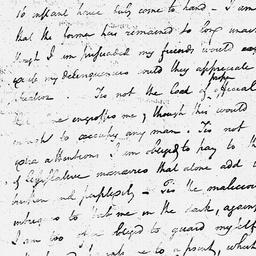 to instant have both come to hand – I am
that the former has remained so long unan
though I am persuaded my friends would
excuse my delinquencies could they appreciate
situation. Tis not the load of official
engrosses me, though this would
enough to occupy any man. Tis not
extra attentions I am obliged to pay to th
of legislative manœuvres that alone add
burden and perplexity – Tis the malicious
intrigues to stab me in the dark, against
I am too often obliged to guard myself